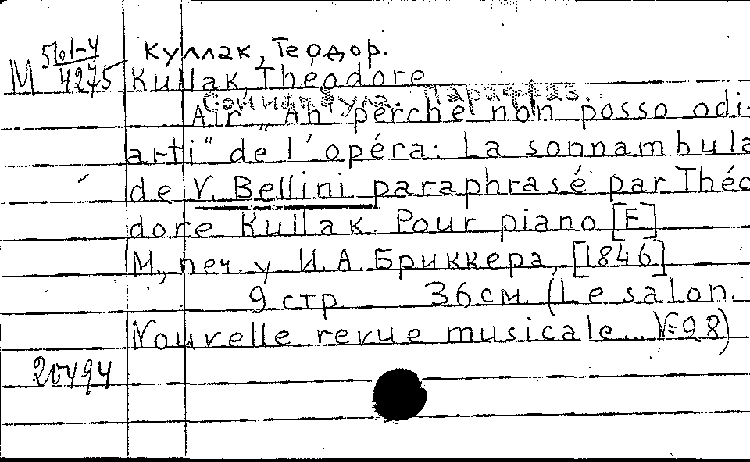 М 5(01-4 Куллак, Теодор.
4275 Kullak, Theodore
Сомнамбула. Парафраз.
Air „Ah! perche non posso odi-
arti" de l'opéra: La sonnambula
de V. Bellini paraphrasé par Théo-
dore Kullak. Pour piano [F]
М., печ. у И.А. Бриккера, [1846]
9 стр 36 см (Le salon.
Nouvelle revue musicale... №98)
20494